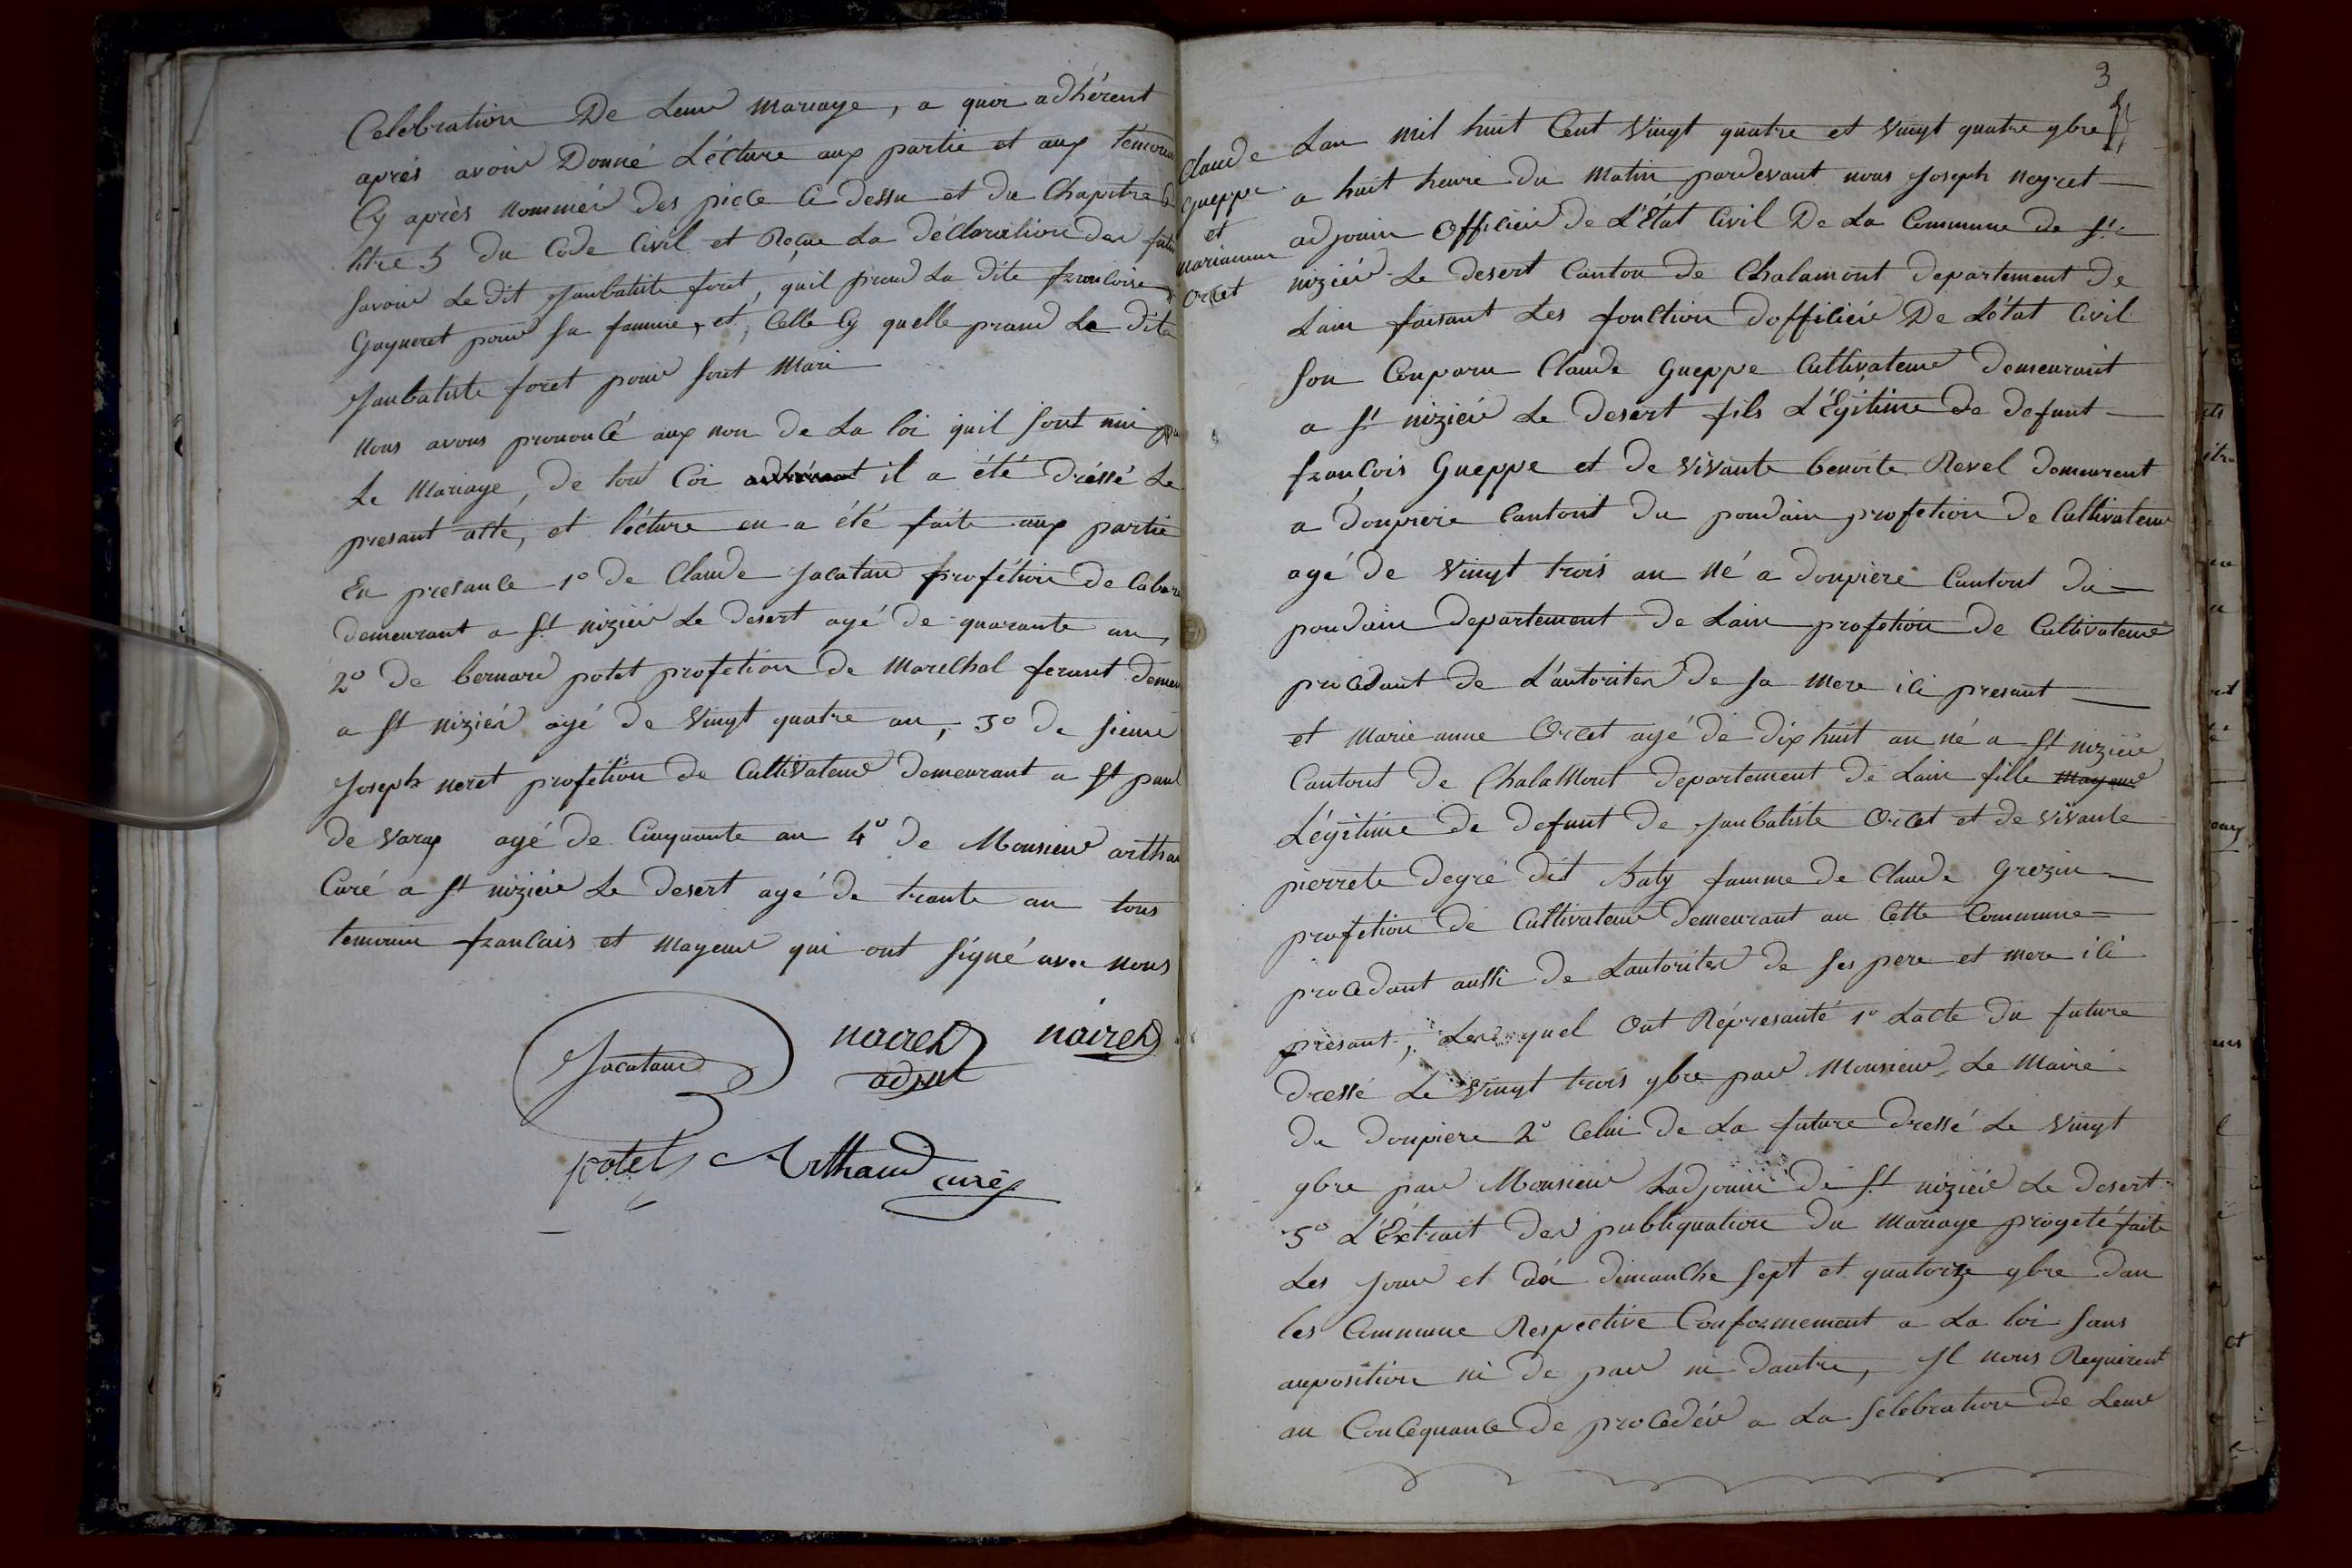 Celebration De Leur mariage, a quoi adhérent
après avoir Donné Lécture aux partie et aux témoin
Cy après nommée des piece Ci dessu et du Chapitre 6
titre 5 du Code Civil et Reçue La déClaration des futur
savoir Le dit Janbatiste foret, quil prend La dite francoise
Gayneret pour sa famme, et, Celle Cy quelle prand Le dite
Janbatiste foret pour sont Mari
nous avons prononcé aux non de La loi quil sont uni par
Le Mariage, de tout Coi il a été dréssé Le
presant atte, et lécture en a été faite aux partie
En presance 1º de Claude Jacatan profétion de
demeurant a St nizier Le Desert agé de quarante an,
2º De bernard potet profetion de Marechal ferant
a St nizier agé de Vingt quatre an, 3º De sieur
Joseph neret profétion de Cultivateur demeurant a St paul
de Varax agé de Cinquante an 4º de Monsieur arthau
Curé a St nizier Le Desert agé de trante an tous
temouin francais et mayeur qui ont signé avec nous
Jacatand nairet nairet
adjnt
potet Arthaud curé
3
Claude
Gueppe
et
mariannne
Orcet
Lan mil huit Cent Vingt quatre et Vingt quatre 9bre
a huit heure du Matin pardevant nous Joseph neyret
adjouin Officier de L'État Civil De La Commune de St
nizier Le desert Canton de Chalamont departement de
Lain faisant Les fonction dofficier De Létat Civil
son Conparu Claude Gueppe Cultivateur Demeurant
a St nizier Le desert fils L'Egitime de defunt
françois Gueppe et de Vivante benoite Revel demeurent
a donpiere Cantont du pondain profetion de Cultivateur
agé de Vingt trois an né a donpiere Cantont du
pondain departement de Lain profetion de Cultivateur
procedant de L'autoriter de sa mere ici presant
et Marie anne Orcet agé de dix huit an né a St nizier
Cantont de Chalamont departement de Lain fille mayeur
Légitime de defunt de Janbatiste Orcet et de Vivante
pierrete degré dit Baty famme de Claude Grezin
profetion de Cultivateur demeurant au Cette Commune
procedant aussi de Lautoriter de ses pere et mere ici
présant, Les quel Ont Réprésanté 1º Lacte du future
dressé Le Vingt trois 9bre par Monsieur Le Maire
de donpiere 2º Celui de La future dressé Le Vingt
9bre par Monsieur Ladjouin de St nizier Le desert
3º L'Extrait des publiquation du Mariage progeté faite
Les jour et de dimanche sept et quatorze 9bre dan
les Commune Respective Conformement a La loi sans
auposition ni de par ni dautre, Il nous Requirent
au Conceguance de proceder a La selebration de Leur